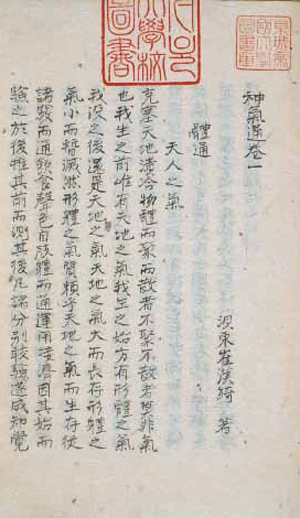 神氣通卷一
浿東崔漢綺 著
體通
天人之氣
充塞天地漬洽物體而聚而散者不聚不散者莫非氣
也我生之前惟有天地之氣我生之始方有形體之氣
我沒之後還是天地之氣天地之氣大而長存形體之
氣小而暫滅然形體之氣質賴乎天地之氣而生存從
諸竅而通飲食聲色自肢體而通運用接濟因其始而
驗之於後推其前而測其後凡諸分別較驗遂成知覺